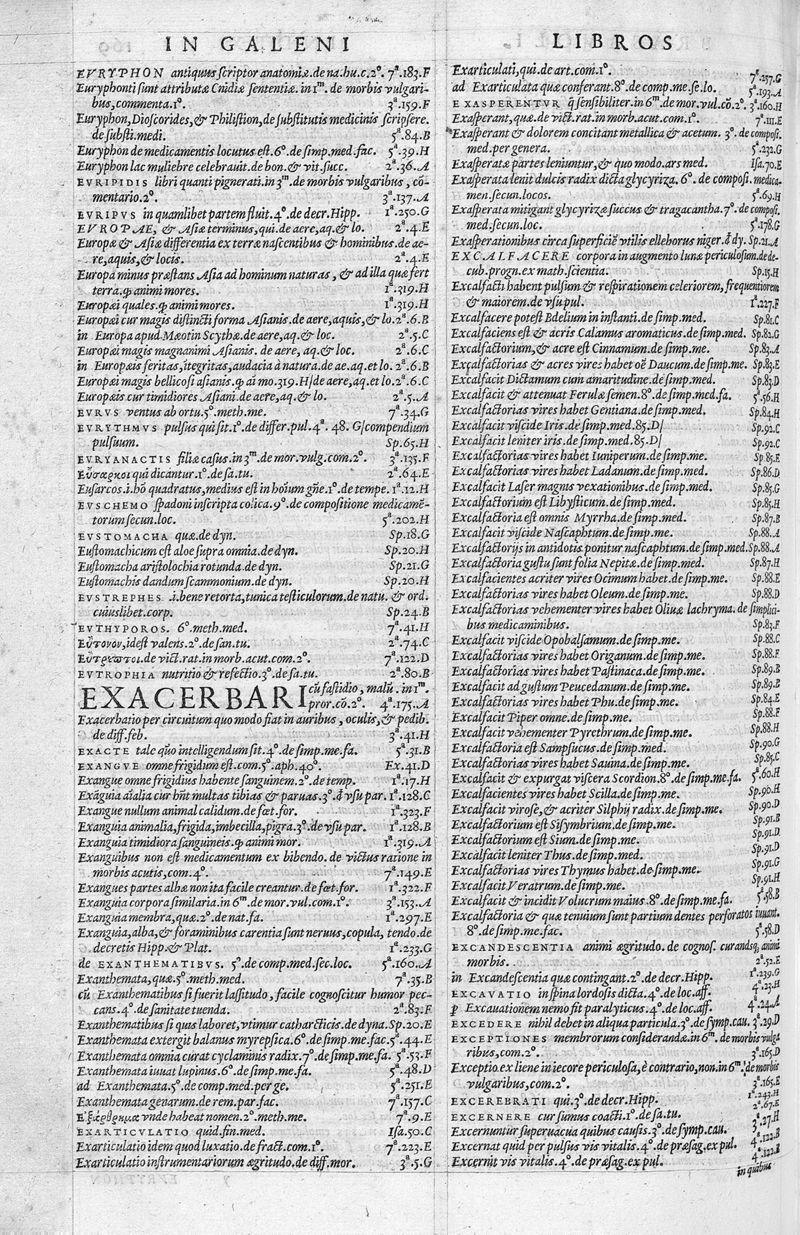 IN GALENI
EVRYPHON antiquus scriptor anatomiæ. de na. hu. c. 2°. 7ª.183.F
Euryphonti sunt attributæ Cnidiæ sententiæ. in 1m. de morbis vulgari-
bus, commenta. 1°. 3ª.159.F
Euryphon, Dioscorides, & Philistion, de substitutis medicinis scripsere.
de substi. medi. 5ª.84.B
Euryphon de medicamentis locutus est. 6°. de simp. med. fac. 5ª.39.H
Euryphon lac muliebre celebrauit. de bon. & vit. succ. 2ª.36.A
EVRIPIDIS libri quanti pignerati. in 3m. de morbis vulgaribus, cō-
mentario. 2°. 3ª.137.A
EVRIPVS in quamlibet partem fluit. 4°. de decr. Hipp. 1ª.250.G
EVROPAE, & Asiæ terminus, qui. de aere, aq. & lo. 2ª.4.E
Europæ & Asiæ differentia ex terræ nascentibus & hominibus. de ae-
re, aquis, & locis. 2ª.4.E
Europa minus præstans Asia ad hominum naturas, & ad illa quæ fert
terra. q; animi mores. 1ª.319.H
Europæi quales. q; animi mores. 1ª.319.H
Europæi cur magis distincti forma Asianis. de aere, aquis, & lo. 2ª.6.B
in Europa apud Mæotin Scythæ. de aere, aq. & loc. 2ª.5.C
Europæi magis magnanimi Asianis. de aere, aq. & loc. 2ª.6.C
in Europæis feritas, ītegritas, audacia à natura. de ae. aq. et lo. 2ª.6.B
Europæi magis bellicosi asianis. q; ai mo. 319. H| de aere, aq. et lo. 2ª.6.C
Europæis cur timidiores Asiani. de aere, aq. & lo. 2ª.5.A
EVRVS ventus ab ortu. 5°. meth. me. 7ª.34.G
EVRYTHMVS pulsus qui sit. 1°. de differ. pul. 4ª. 48. G| compendium
pulsuum. Sp.65.H
EVRYANACTIS filiæ casus. in 3m. de mor. vulg. com. 2°. 3ª.135.F
Εὔσαρκοι qui dicantur. 1°. de sa. tu. 2ª.64.E
Eusarcos. i. hō quadratus, medius est in hoīum gn̄e. 1°. de tempe. 1ª.12.H
EVSCHEMO spadoni inscripta colica. 9°. de compositione medicamē-
torum secun. loc. 5ª.202.H
EVSTOMACHA quæ. de dyn. Sp.18.G
Eustomachicum est aloe supra omnia. de dyn. Sp.20.H
Eustomacha aristolochia rotunda. de dyn. Sp.21.G
Eustomachis dandum scammonium. de dyn. Sp.20.H
EVSTREPHES .i. bene retorta, tunica testiculorum. de natu. & ord.
cuiuslibet corp. Sp.24.B
EVTHYPOROS. 6°. meth. med. 7ª.41.H
Εὔτονον, idest valens. 2°. de san. tu. 2ª.74.C
de vict. rat. in morb. acut. com. 2°. 7ª.122.D
EVTROPHIA nutritio & refectio. 3°. de sa. tu. 2ª.80.B
EXACERBARI cū fastidio, malū. in 1m.
pror. cō. 2°. 4ª.175.A
Exacerbatio per circuitum quo modo fiat in auribus, oculis, & pedib.
de diff. feb. 3ª.41.H
EXACTE tale quo intelligendum sit. 4°. de simp. me. fa. 5ª.31.B
EXANGVE omne frigidum est. com. 5°. aph. 40°. Ex.41.D
Exangue omne frigidius habente sanguinem. 2°. de temp. 1ª.17.H
Exāguia aīalia cur hn̄t multas tibias & paruas. 3°. d' vsu par. 1ª.128.C
Exangue nullum animal calidum. de fœt. for. 1ª.323.F
Exanguia animalia, frigida, imbecilla, pigra. 3°. de vsu par. 1ª.128.B
Exanguia timidiora sanguineis. q; animi mor. 1ª.319.A
Exanguibus non est medicamentum ex bibendo. de victus ratione in
morbis acutis, com. 4°. 7ª.149.E
Exangues partes albæ non ita facile creantur. de fœt. for. 1ª.322.F
Exanguia corpora similaria. in 6m. de mor. vul. com. 1°. 3ª.153.A
Exanguia membra, quæ. 2°. de nat. fa. 1ª.297.E
Exanguia, alba, & foraminibus carentia sunt neruus, copula, tendo. de
decretis Hipp. & Plat. 1ª.233.G
de EXANTHEMATIBVS. 5°. de comp. med. sec. loc. 5ª.160.A
Exanthemata, quæ. 5°. meth. med. 7ª.35.B
cū Exanthematibus si fuerit lassitudo, facile cognoscitur humor pec-
cans. 4°. de sanitate tuenda. 2ª.83.F
Exanthematibus si quas laboret, vtimur catharcticis. de dyna. Sp.20.E
Exanthemata extergit balanus myrepsica. 6°. de simp. me. fac. 5ª.44.E
Exanthemata omnia curat cyclaminis radix. 7°. de simp. me. fa. 5ª.53.F
Exanthemata iuuat lupinus. 6°. de simp. me. fa. 5ª.48.D
ad Exanthemata. 5°. de comp. med. per ge. 5ª.251.E
Exanthemata generantur. de rem. par. fac. 7ª.157.C
vnde habeat nomen. 2°. meth. me. 7ª.9.E
EXARTICVLATIO quid. fin. med. Isa.50.C
Exarticulatio idem quod luxatio. de fract. com. 1°. 7ª.223.E
Exarticulatio instrumentariorum ægritudo. de diff. mor. 3ª.5.G
LIBROS
Exarticulati, qui. de art. com. 1°. 7ª.257.G
ad Exarticulata quæ conferant. 8°. de comp. me. se. lo. 5ª.193.A
EXASPERENTVR q̄ sensibiliter. in 6m. de mor. vul. cō. 2°. 3ª.160.H
Exasperant, quæ. de vict. rat. in morb. acut. com. 1°. 7ª.111.E
Exasperant & dolorem concitant metallica & acetum. 3°. de composi.
med. per genera. 5ª.232.G
Exasperatæ partes leniuntur, & quo modo. ars med. Isa.70.E
Exasperata lenit dulcis radix dicta glycyriza. 6°. de composi. medica-
men. secun. locos. 5ª.69.H
Exasperata mitigant glycyrizæ succus & tragacantha. 7°. de composi.
med. secun. loc. 5ª.178.G
Exasperationibus circa superficiē vtilis elleborus niger. d' dy. Sp.21.A
EXCALFACERE corpora in augmento lunæ periculosum. de de-
cub. progn. ex math. scientia. Sp.15.H
Excalfacti habent pulsum & respirationem celeriorem, frequentiorem
& maiorem. de vsu pul. 1ª.227.F
Excalfacere potest Bdelium in instanti. de simp. med. Sp.81.C
Excalfaciens est & acris Calamus aromaticus. de simp. med. Sp.82.G
Excalfactorium, & acre est Cinnamum. de simp. me. Sp.83.A
Excalfactorias & acres vires habet oē Daucum. de simp. me. Sp.83.E
Excalfacit Dictamum cum amaritudine. de simp. med. Sp.83.D
Excalfacit & attenuat Ferulæ semen. 8°. de simp. med. fa. 5ª.56.H
Excalfactorias vires habet Gentiana. de simp. med. Sp.84.H
Excalfacit viscide Iris. de simp. med. 85. D| Sp.92.C
Excalfacit leniter iris. de simp. med. 85. D| Sp.92.C
Excalfactorias vires habet Iuniperum. de simp. me. Sp.85.E
Excalfactorias vires habet Ladanum. de simp. med. Sp.86.D
Excalfacit Laser magnis vexationibus. de simp. med. Sp.85.G
Excalfactorium est Libysticum. de simp. med. Sp.85.H
Excalfactoria est omnis Myrrha. de simp. med. Sp.87.B
Excalfacit viscide Nascaphtum. de simp. me. Sp.88.A
Excalfactorijs in antidotis ponitur nascaphtum. de simp. med. Sp.88.A
Excalfactoria gustu sunt folia Nepitæ. de simp. med. Sp.87.H
Excalfacientes acriter vires Ocimum habet. de simp. me. Sp.88.E
Excalfactorias vires habet Oleum. de simp. me. Sp.88.D
Excalfactorias vehementer vires habet Oliuæ lachryma. de simplici-
bus medicaminibus. Sp.83.F
Excalfacit viscide Opobalsamum. de simp. me. Sp.88.C
Excalfactorias vires habet Origanum. de simp. me. Sp.88.F
Excalfactorias vires habet Pastinaca. de simp. me. Sp.89.B
Excalfacit ad gustum Peucedanum. de simp. me. Sp.89.B
Excalfactorias vires habet Phu. de simp. me. Sp.84.E
Excalfacit Piper omne. de simp. me. Sp.88.F
Excalfacit vehementer Pyrethrum. de simp. me. Sp.88.H
Excalfactoria est Sampsucus. de simp. med. Sp.90.G
Excalfactorias vires habet Sauina. de simp. me. Sp.85.C
Excalfacit & expurgat viscera Scordion. 8°. de simp. me. fa. 5ª.60.H
Excalfacientes vires habet Scilla. de simp. me. Sp.90.H
Excalfacit virose, & acriter Silphij radix. de simp. me. Sp.90.D
Excalfactorium est Sisymbrium. de simp. me. Sp.91.B
Excalfactorium est Sium. de simp. me. Sp.91.D
Excalfacit leniter Thus. de simp. med. Sp.91.D
Excalfactorias vires Thymus habet. de simp. me. Sp.91.G
Excalfacit Veratrum. de simp. me. Sp.91.H
Excalfacit & incidit Volucrum maius. 8°. de simp. me. fa. 5ª.58.B
Excalfactoria & quæ tenuium sunt partium dentes perforatos iuuant.
8°. de simp. me. fac. 5ª.58.D
EXCANDESCENTIA animi ægritudo. de cognos. curandisq; animi
morbis. 2ª.52.E
in Excandescentia quæ contingant. 2°. de decr. Hipp. 1ª.239.G
EXCAVATIO in spina lordosis dicta. 4°. de loc. aff. 4ª.23.H
p Excauationem nemo fit paralyticus. 4°. de loc. aff. 4ª.24.A
EXCEDERE nihil debet in aliqua particula. 3°. de symp. cau. 3ª.29.D
EXCEPTIONES membrorum considerandæ. in 6m. de morbis vulga
ribus, com. 2°. 3ª.165.D
Exceptio ex liene in iecore periculosa, è contrario, non. in 6m. de morbis
vulgaribus, com. 2°. 3ª.165.E
EXCEREBRATI qui. 3°. de decr. Hipp. 1ª.243.H
EXCERNERE cur sumus coacti. 1°. de sa. tu. 2ª.67.E
Excernuntur superuacua quibus causis. 3°. de symp. cau. 3ª.27.H
Excernat quid per pulsus vis vitalis. 4°. de præsag. ex pul. 4ª.122.B
Excernit vis vitalis. 4°. de præsag. ex pul. 4ª.122.B
in quibus